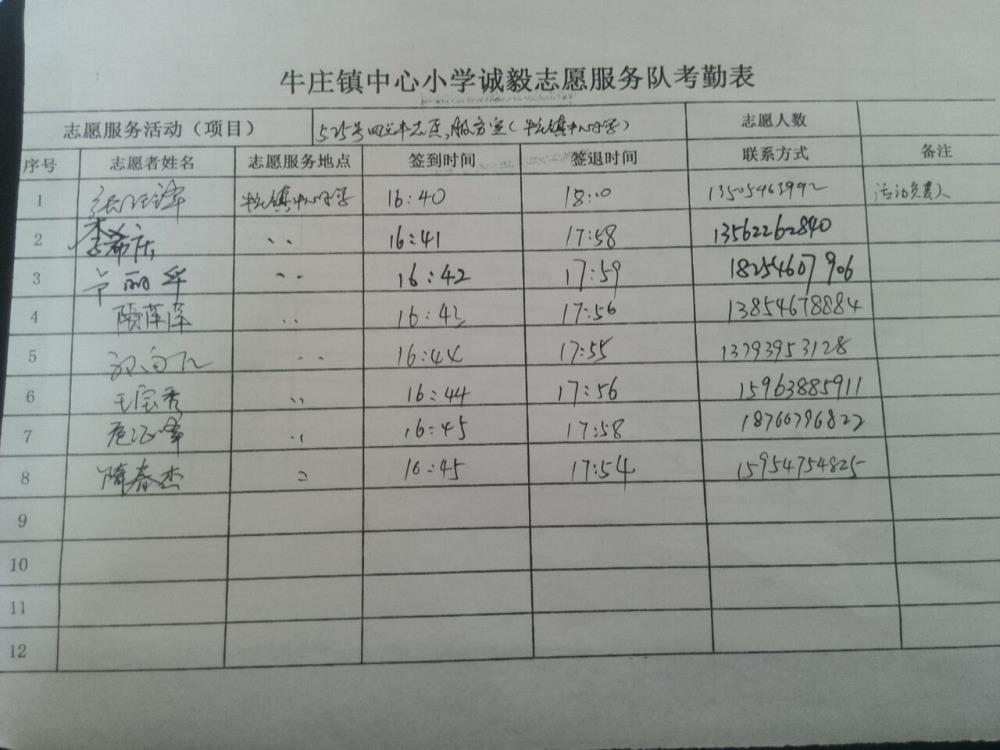 牛庄镇中心小学诚毅志愿服务队考勤表
志愿服务活动（项目） 志愿人数
序号 志愿者姓名 志愿服务地点 签到时间 签退时间 联系方式 备注
1 牛庄镇中心小学 16:40 18:00 13505463992 活动负责人
2 李希庆 、、 16:41 17:58 13562262840
3 、、 16:42 17:59 18254607906
4 、、 16:42 17:56 13854678884
5 、、 16:44 17:55 13793953128
6 王宝秀 、、 16:44 17:56 15963885911
7 、、 16:45 17:58 18766796822
8 隋春杰 16:45 17:54 15954754825
9
10
11
12